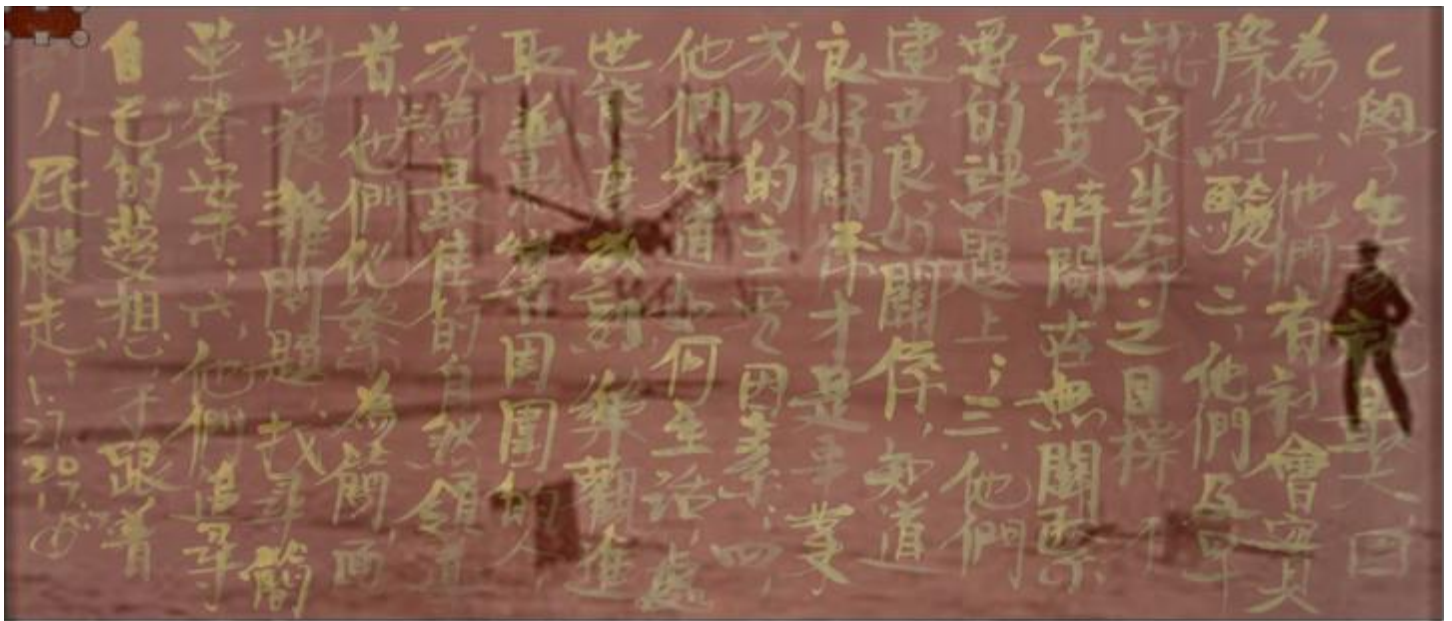 C學生 最大,因
為:一,他們有社會實
際經驗;二,他們及早
認定 之目標,不
浪費時間在無關
要的課題上;三,他們
建立良好關係,知道
良好關係才是事業
成功的主要因素;四,
他們知道如何生活,處
世態度 樂觀進
取,並 周圍的人
成為最佳的自然領導
者,他們化繁為簡,面
對複雜問題,找尋簡
單答案;六,他們追尋
自己的夢想,不跟着
人屁股走.1.27.20